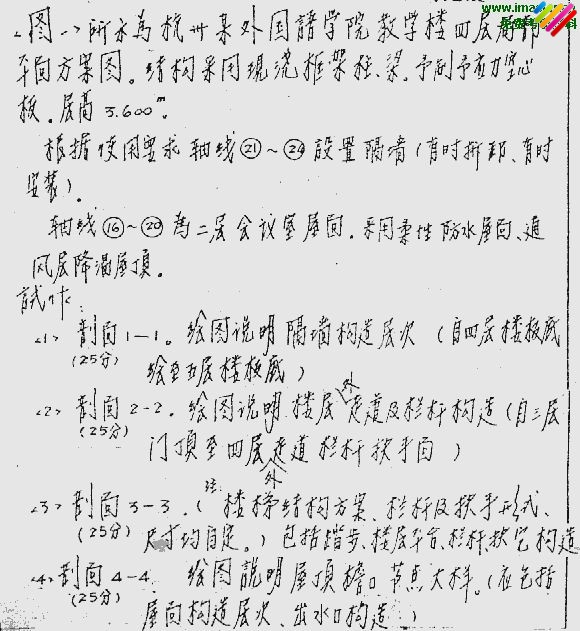 www.ima
2. 图一、所示为杭州某外国語学院教学楼四层局部
平面方案图。结构采用现浇框架柱、梁，予制予应力空心
板，层高3.600m。
根据使用要求轴线㉑～㉔設置隔墙（有时拆卸、有时
安装）。
轴线⑯～⑳為二层会议室屋面，采用柔性防水屋面、通
风层降温屋顶。
試作：
<1> 剖面1-1。绘图说明隔墙构造层次（自四层楼板底
(25分) 绘至五层楼板底）
<2> 剖面2-2。绘图说明楼层外走道及栏杆构造（自三层
(25分) 门頂至四层外走道栏杆扶手面）
<3> 剖面3-3。（注：楼梯结构方案、栏杆及扶手形式、
(25分) 尺寸均自定。）包括踏步、楼层平台、栏杆、扶手构造
<4> 剖面4-4 绘图説明屋頂檐口节点大样。（应包括
(25分) 屋面构造层次、出水口构造）